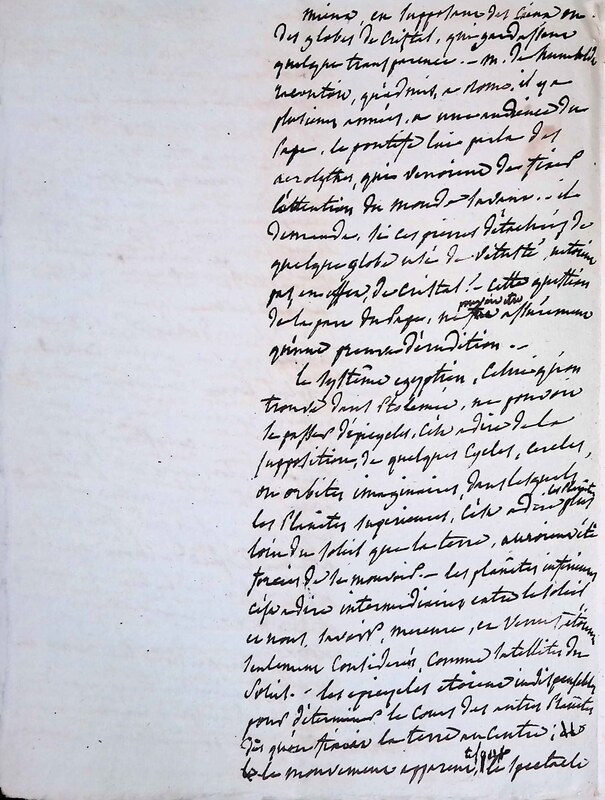 mieux, en supposant des Cieux ou
des globes de Cristal, qui gardassent
quelque transparence. - m. de humboldt
racontoit, qu'admis, a rome, il y a
plusieurs années, a une audience du
Pape, le pontife lui parla des
aerolythes, qui venoient de fixer
l'attention du monde savant. - il
demanda, si ces pierres détachées de
quelque globe usé de vétusté, n'étoient
pas en effet, de cristal! - Cette question
de la part du Pape, ne assurément
qu'une preuve d'érudition. -
le système egyptien, Celui qu'on
trouve dans Ptolémée, ne pouvoit
se passer d'épicycles, c'est a dire de la
supposition, de quelques Cycles, cercles,
ou orbites imaginaires, dans lesquels
les Planètes supérieures, c'est a dire plus
loin du soleil que la terre, auroient été
forcées de se mouvoir. - les planètes inférieures
c'est a dire intermédiaires entre le soleil
et nous, savoir, mercure, et Venus, étoient
seulement Considerées, Comme satellites du
Soleil. - les épicycles etoient indispensables
pour déterminer le Cours des autres Planètes
dès qu'on fixoit la terre au centre;
le mouvement apparent, le spectacle